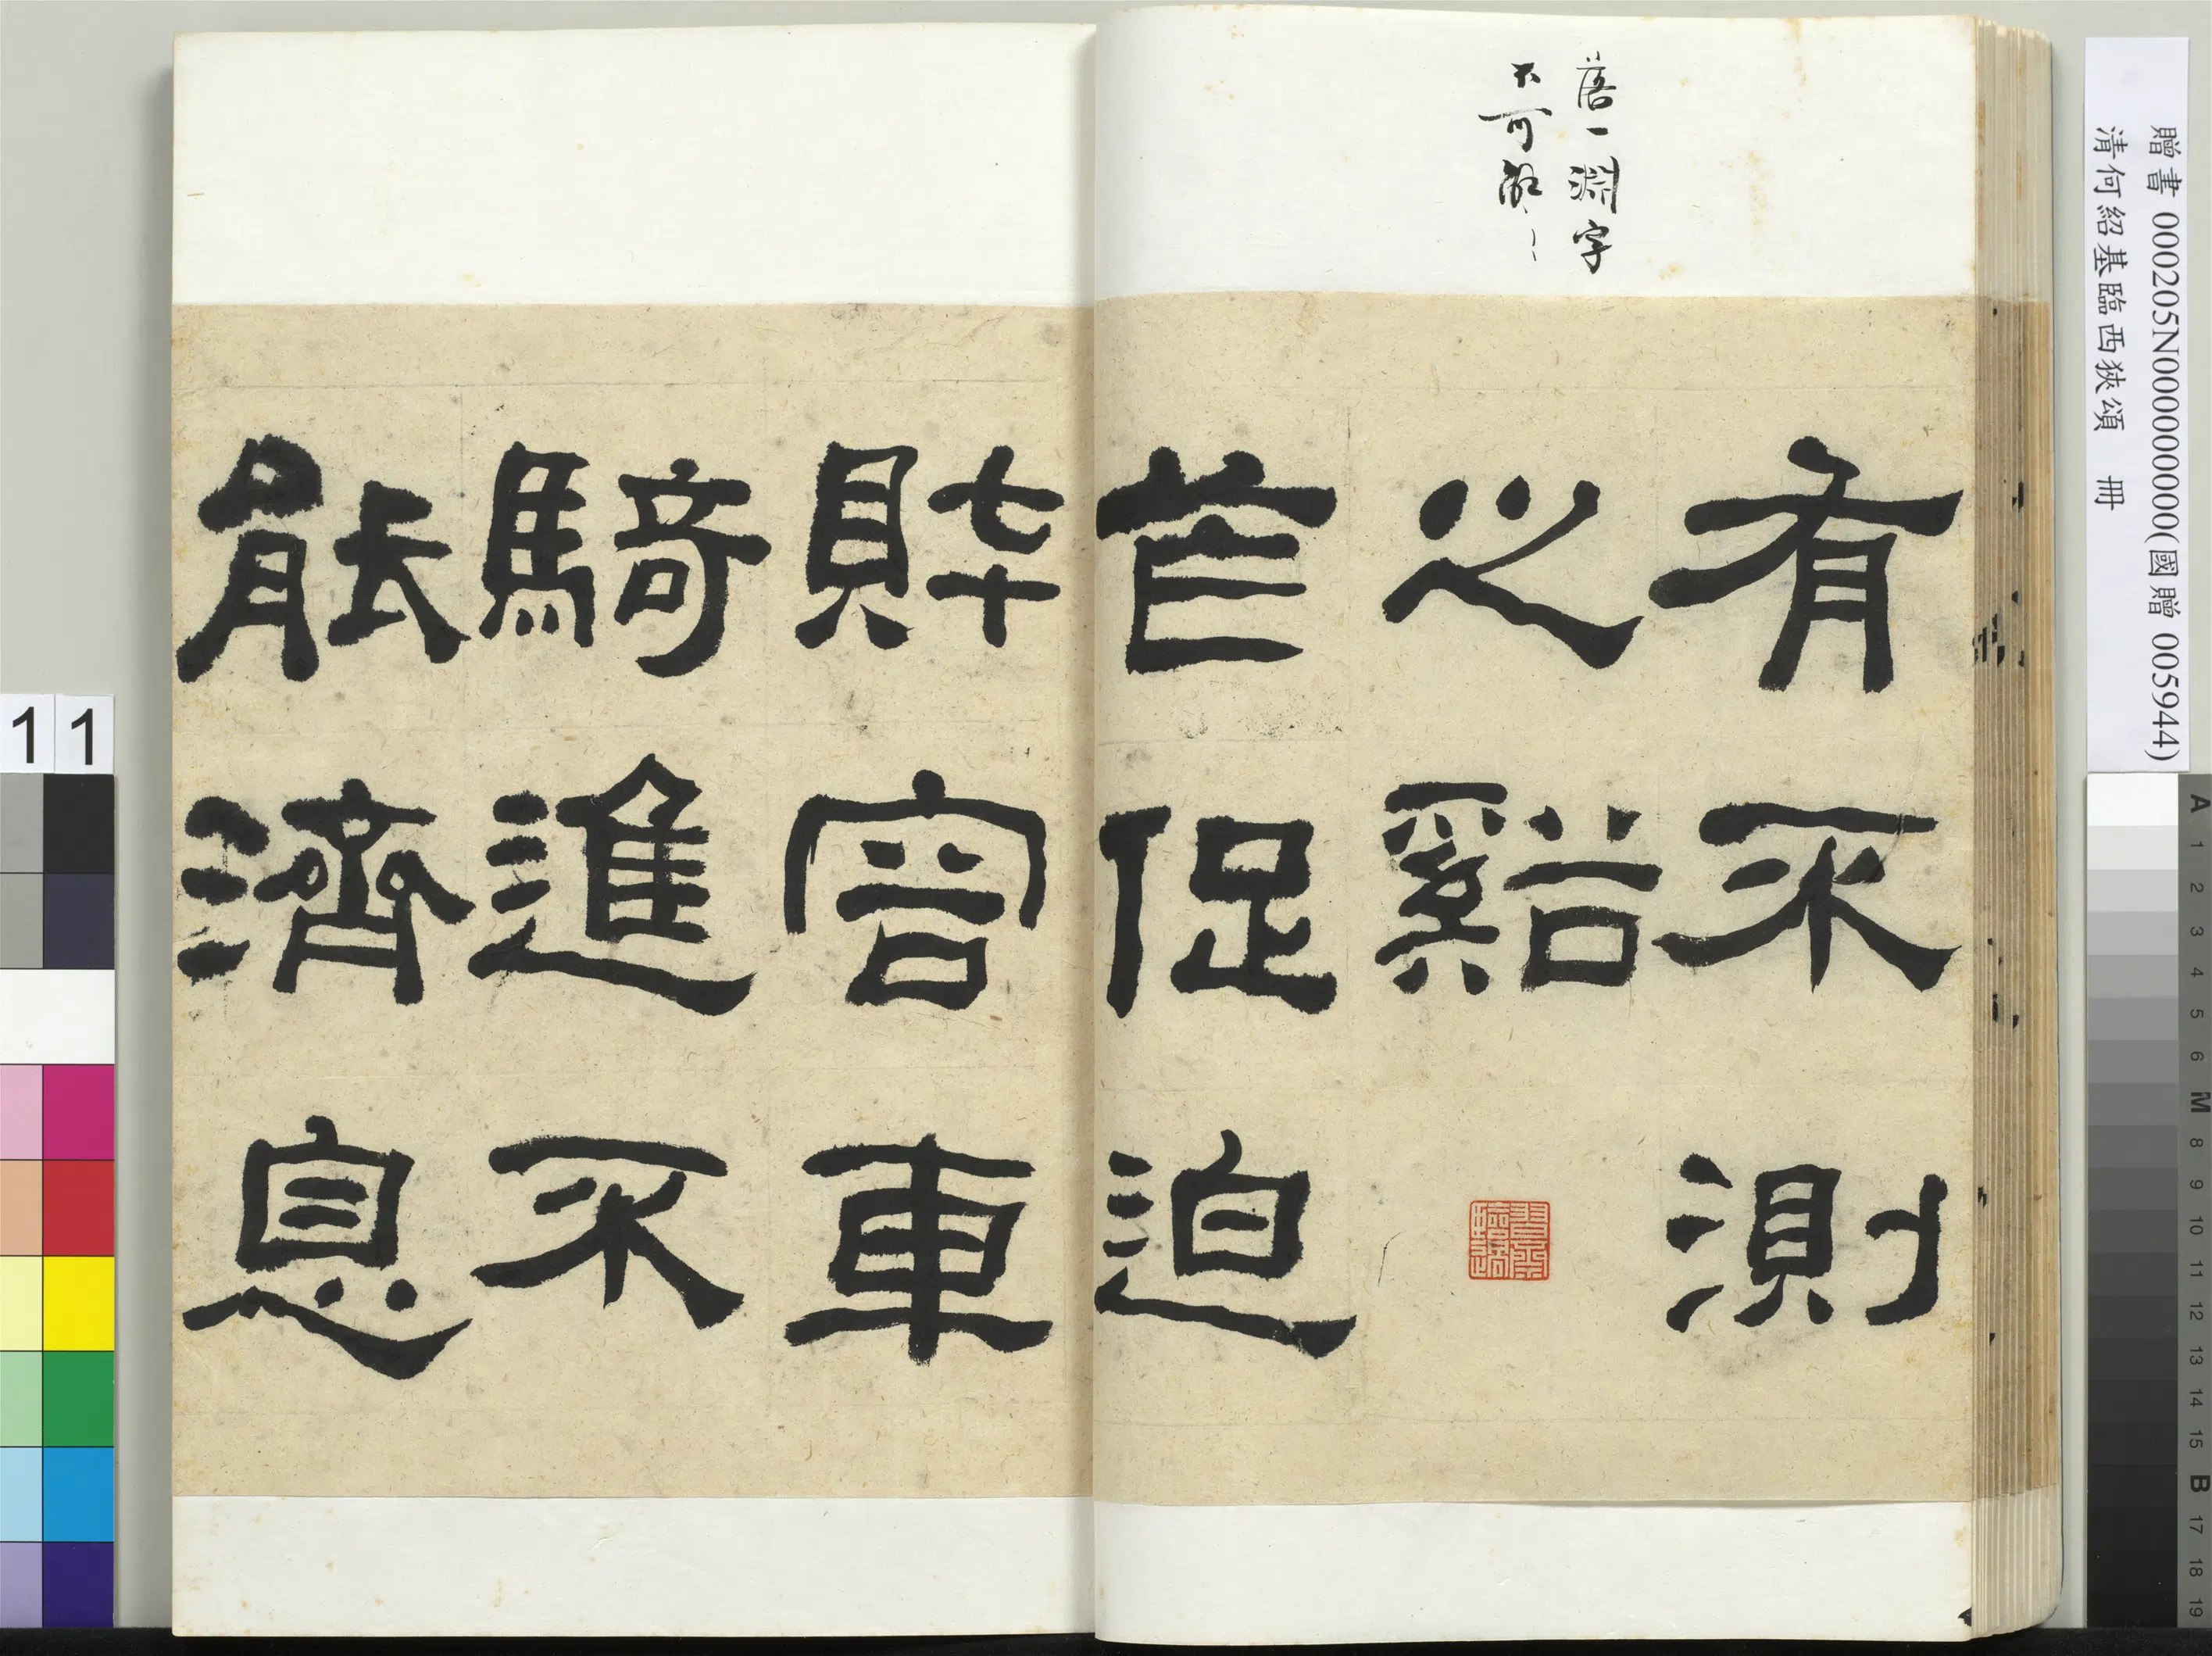 贈書 000205N000000000(國贈 005944)
清何紹基臨西狹頌 冊
落一淵字
不可解
有不測
之谿
苲促迫
財容車
騎進不
能濟息
11
A 1 2 3 4 5 6 M 8 9 10 11 12 13 14 15 B 17 18 19